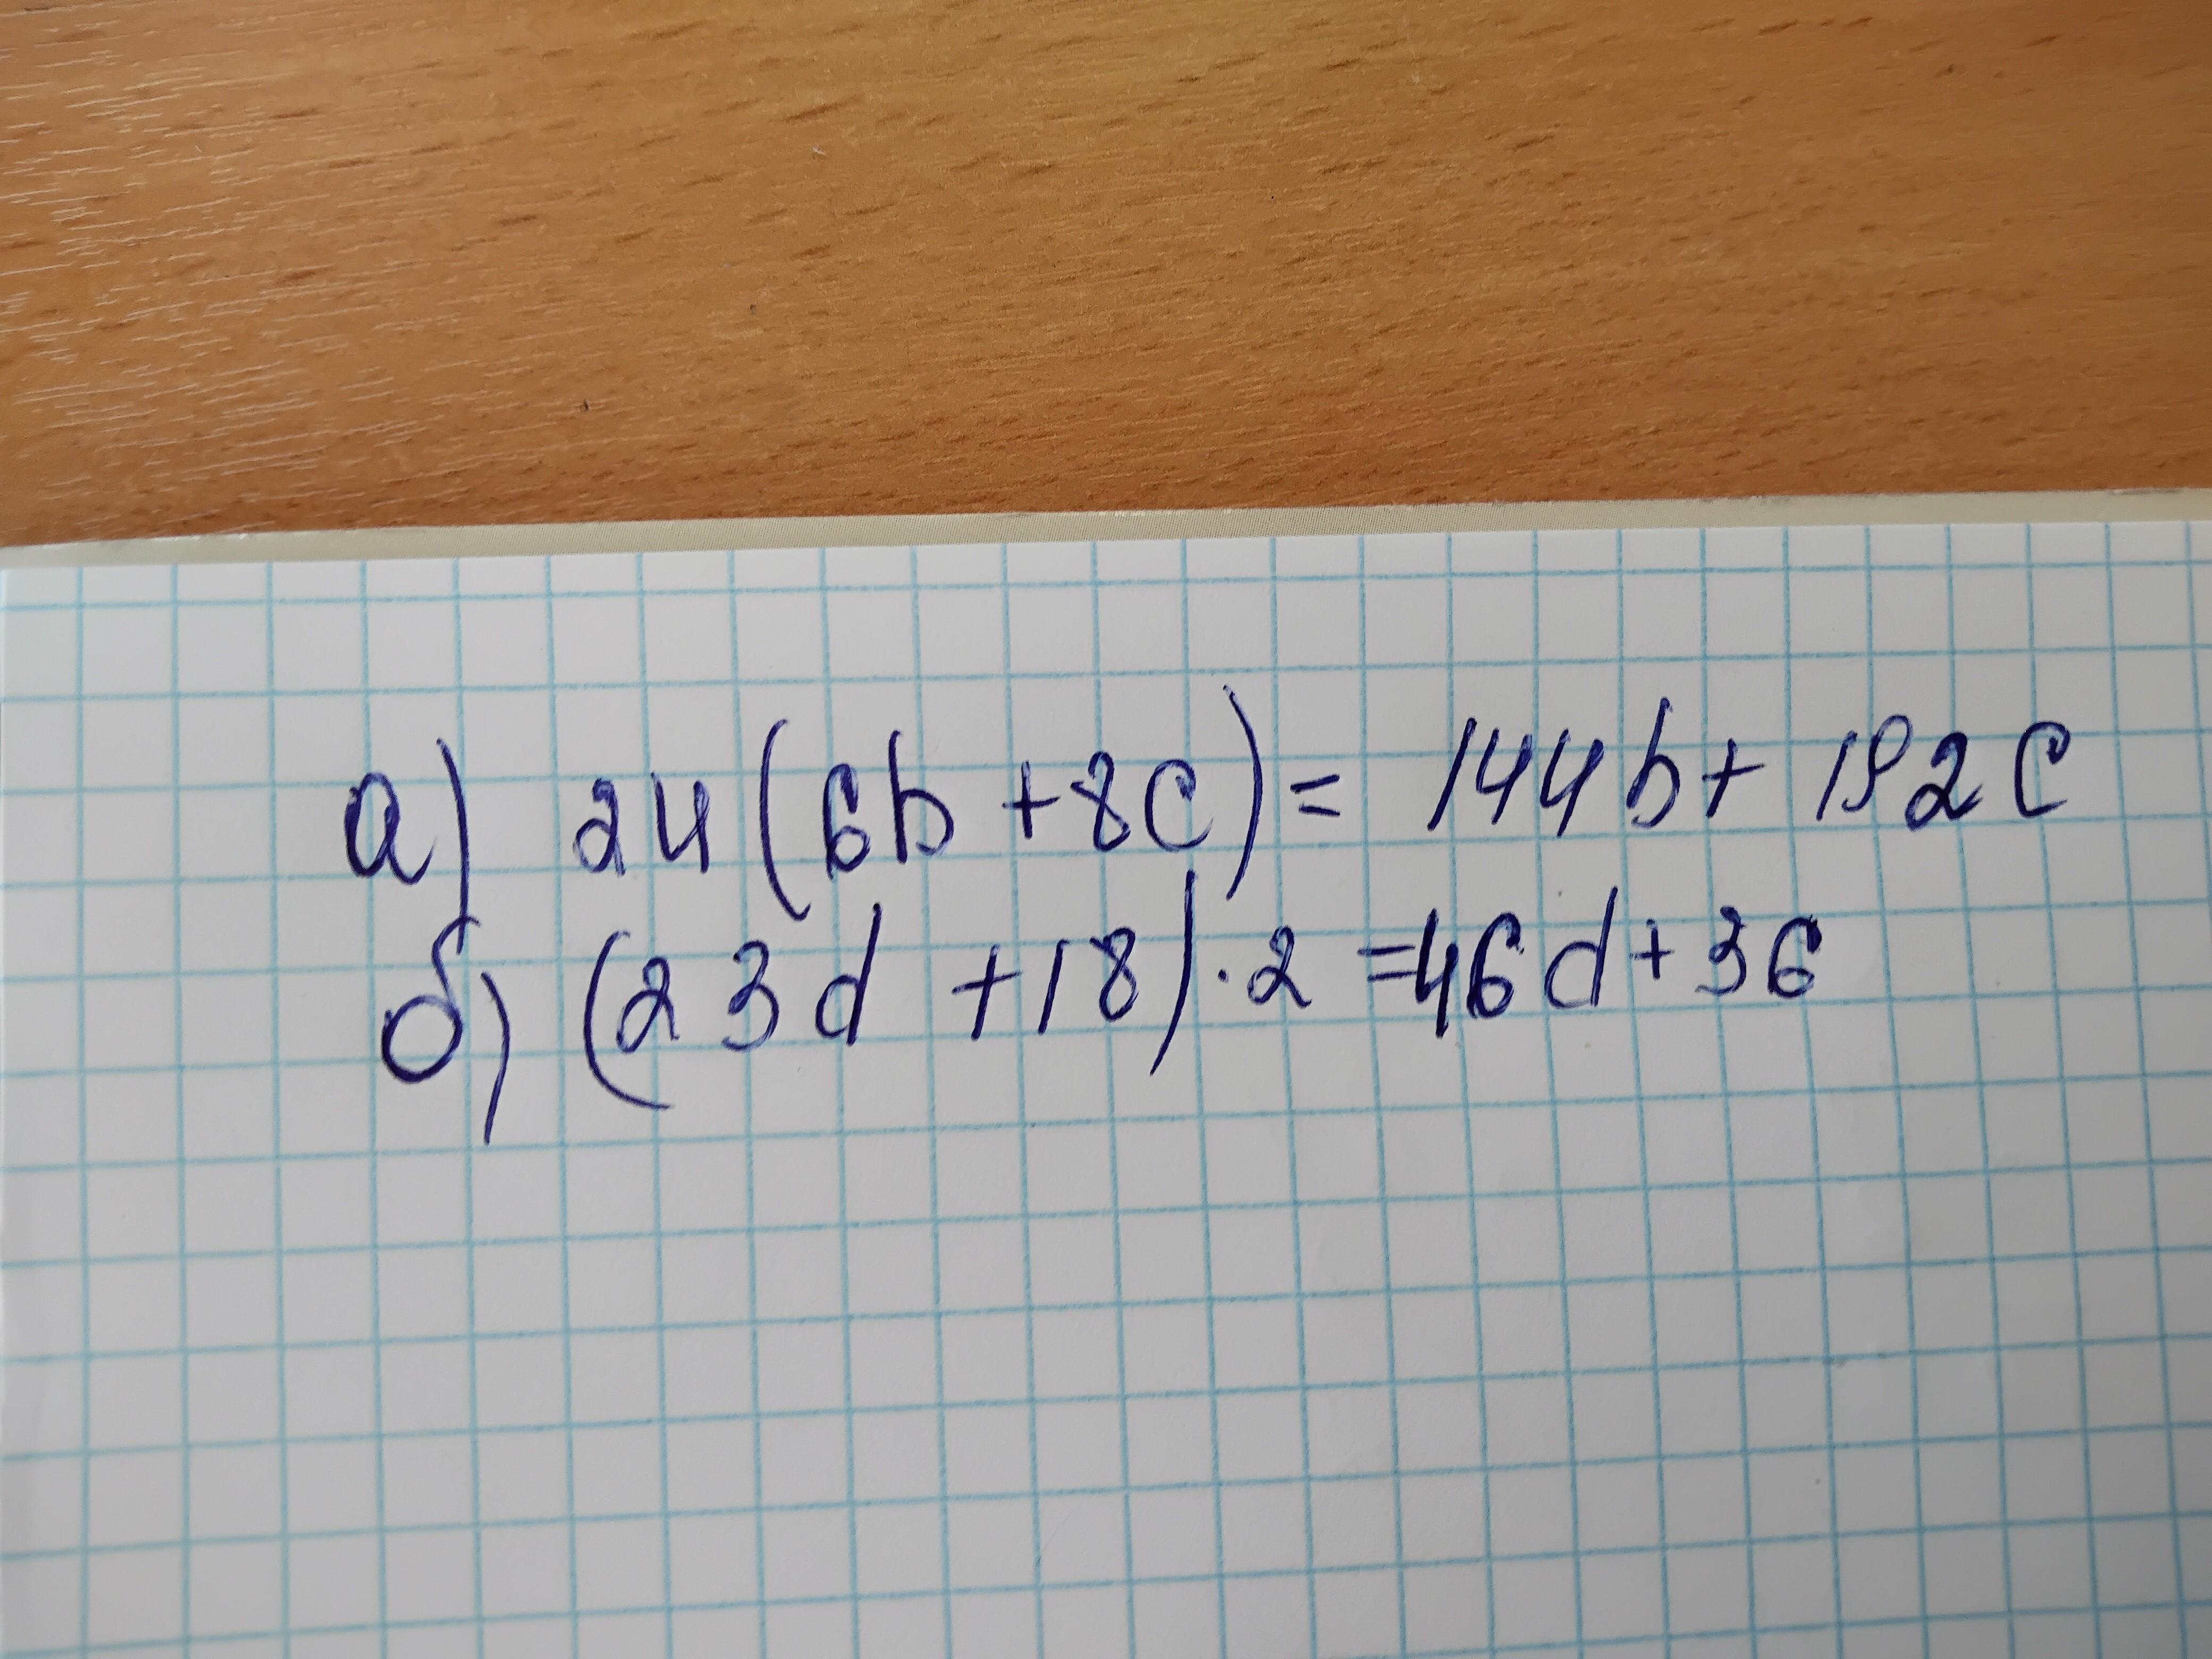 а) 24(6b+8c)= 144b+192c
б) (23d+18)·2=46d+36